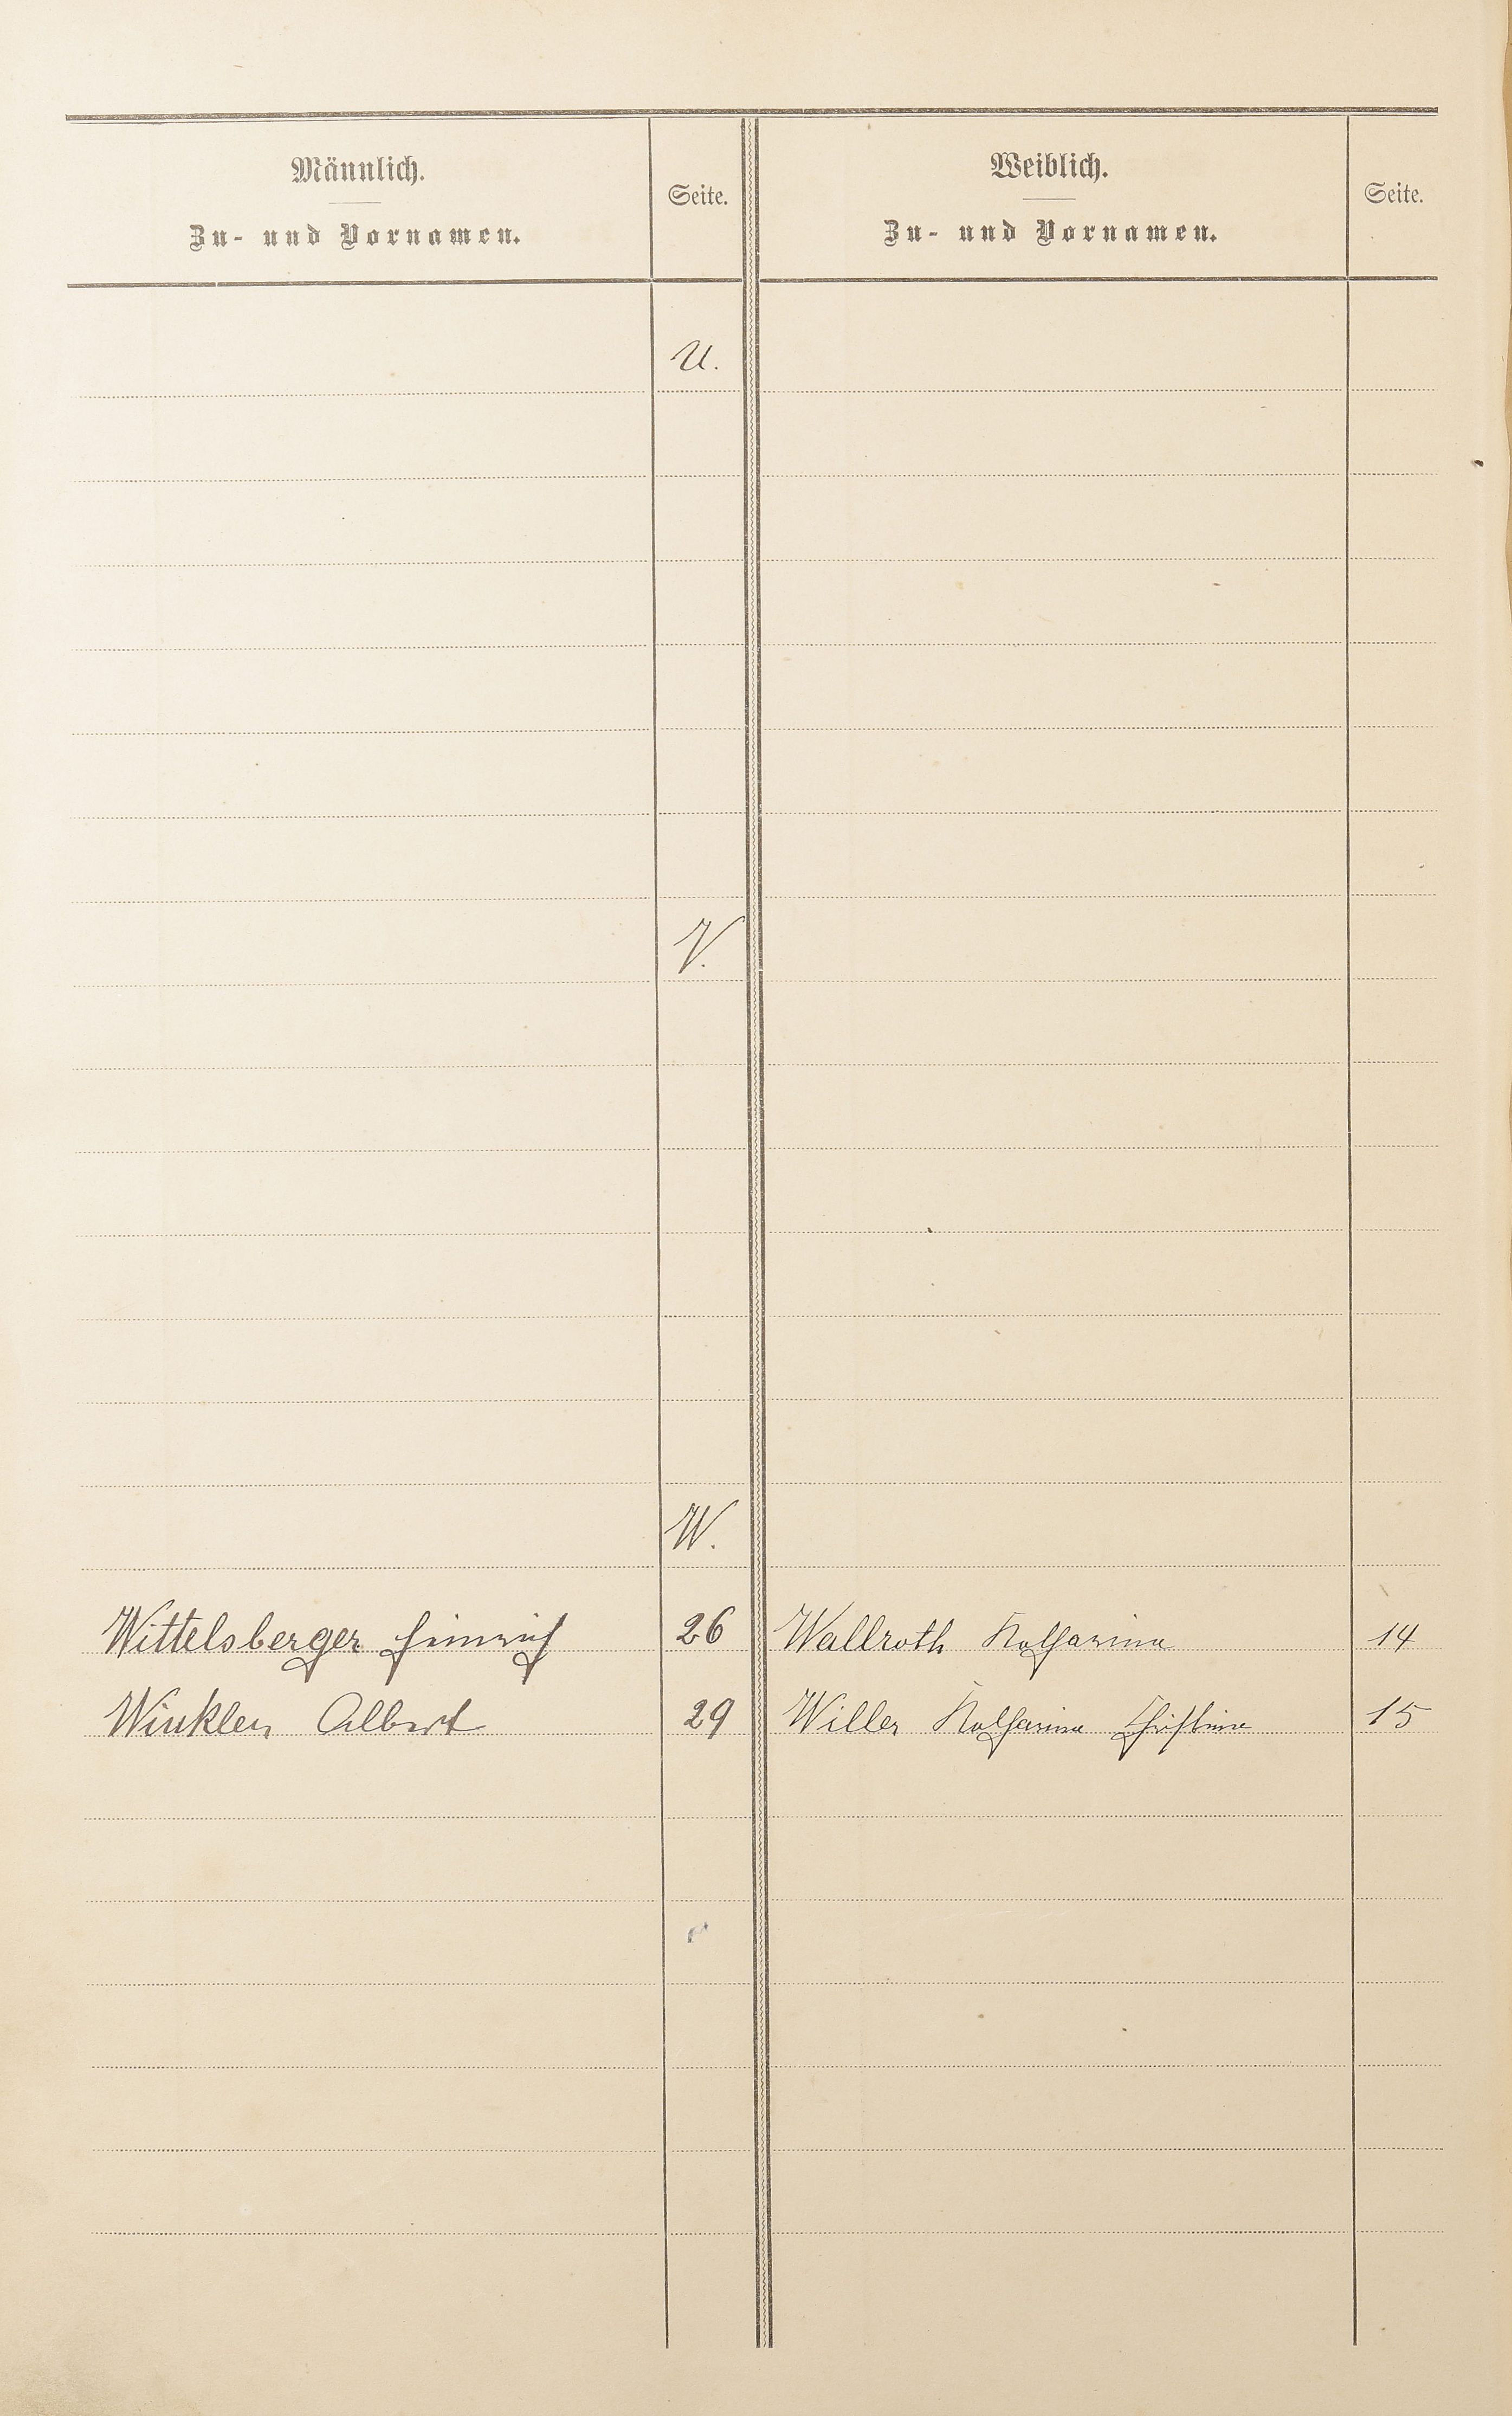 Männlich.
Zu- und Vornamen.
Seite.
Weiblich.
Zu- und Vornamen.
Seite.
U.
V.
W.
Wittelsberger Heinrich 26 Wallroth Katharina 14
Winkler Albert 29 Willer Katharina Christine 15